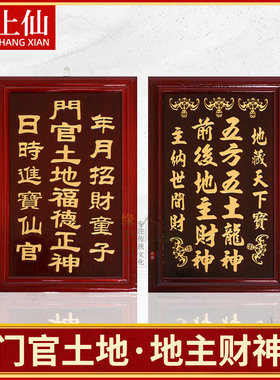 上仙
SHANG XIAN
年月招財童子
門官土地福德正神
日時進寶仙官
地藏天下寶
五方五土龍神
前後地主財神
主納世間財
门官土地·地主财神